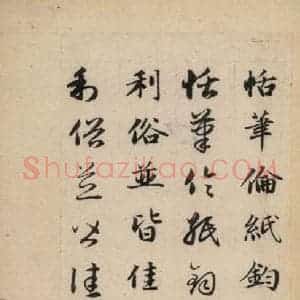 恬筆倫紙鈞
恬筆倫紙鈞
利俗並皆佳
利俗並皆佳